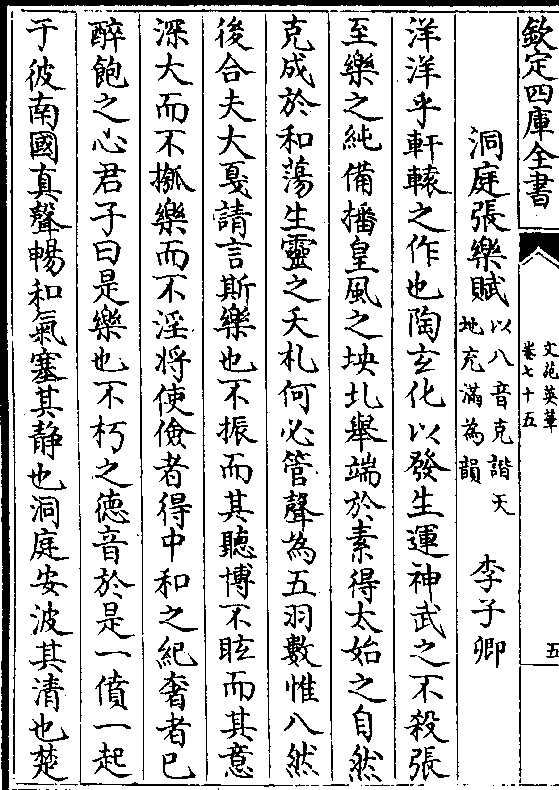 欽定四庫全書
文苑英華
卷七十五
五
洞庭張樂賦以八音克諧天地充滿為韻 李子卿
洋洋乎軒轅之作也陶玄化以發生運神武之不殺張
至樂之純備播皇風之坱圠舉端於素得太始之自然
克成於和蕩生靈之夭札何必管聲為五羽數惟八然
後合夫大戛請言斯樂也不振而其聽博不眩而其意
深大而不摦樂而不淫將使儉者得中和之紀奢者已
醉飽之心君子曰是樂也不朽之徳音於是一僨一起
于彼南國真聲暢和氣塞其静也洞庭安波其清也楚